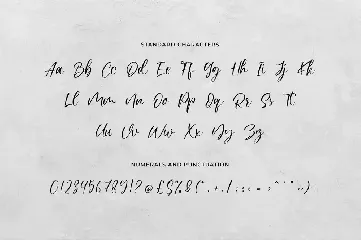 STANDARD CHARACTERS
Aa Bb Cc Dd Ee Ff Gg Hh Ii Jj Kk
Ll Mm Nn Oo Pp Qq Rr Ss Tt
Uu Vv Ww Xx Yy Zz
NUMERALS AND PUNCTUATION
0123456789!?@£$%&(